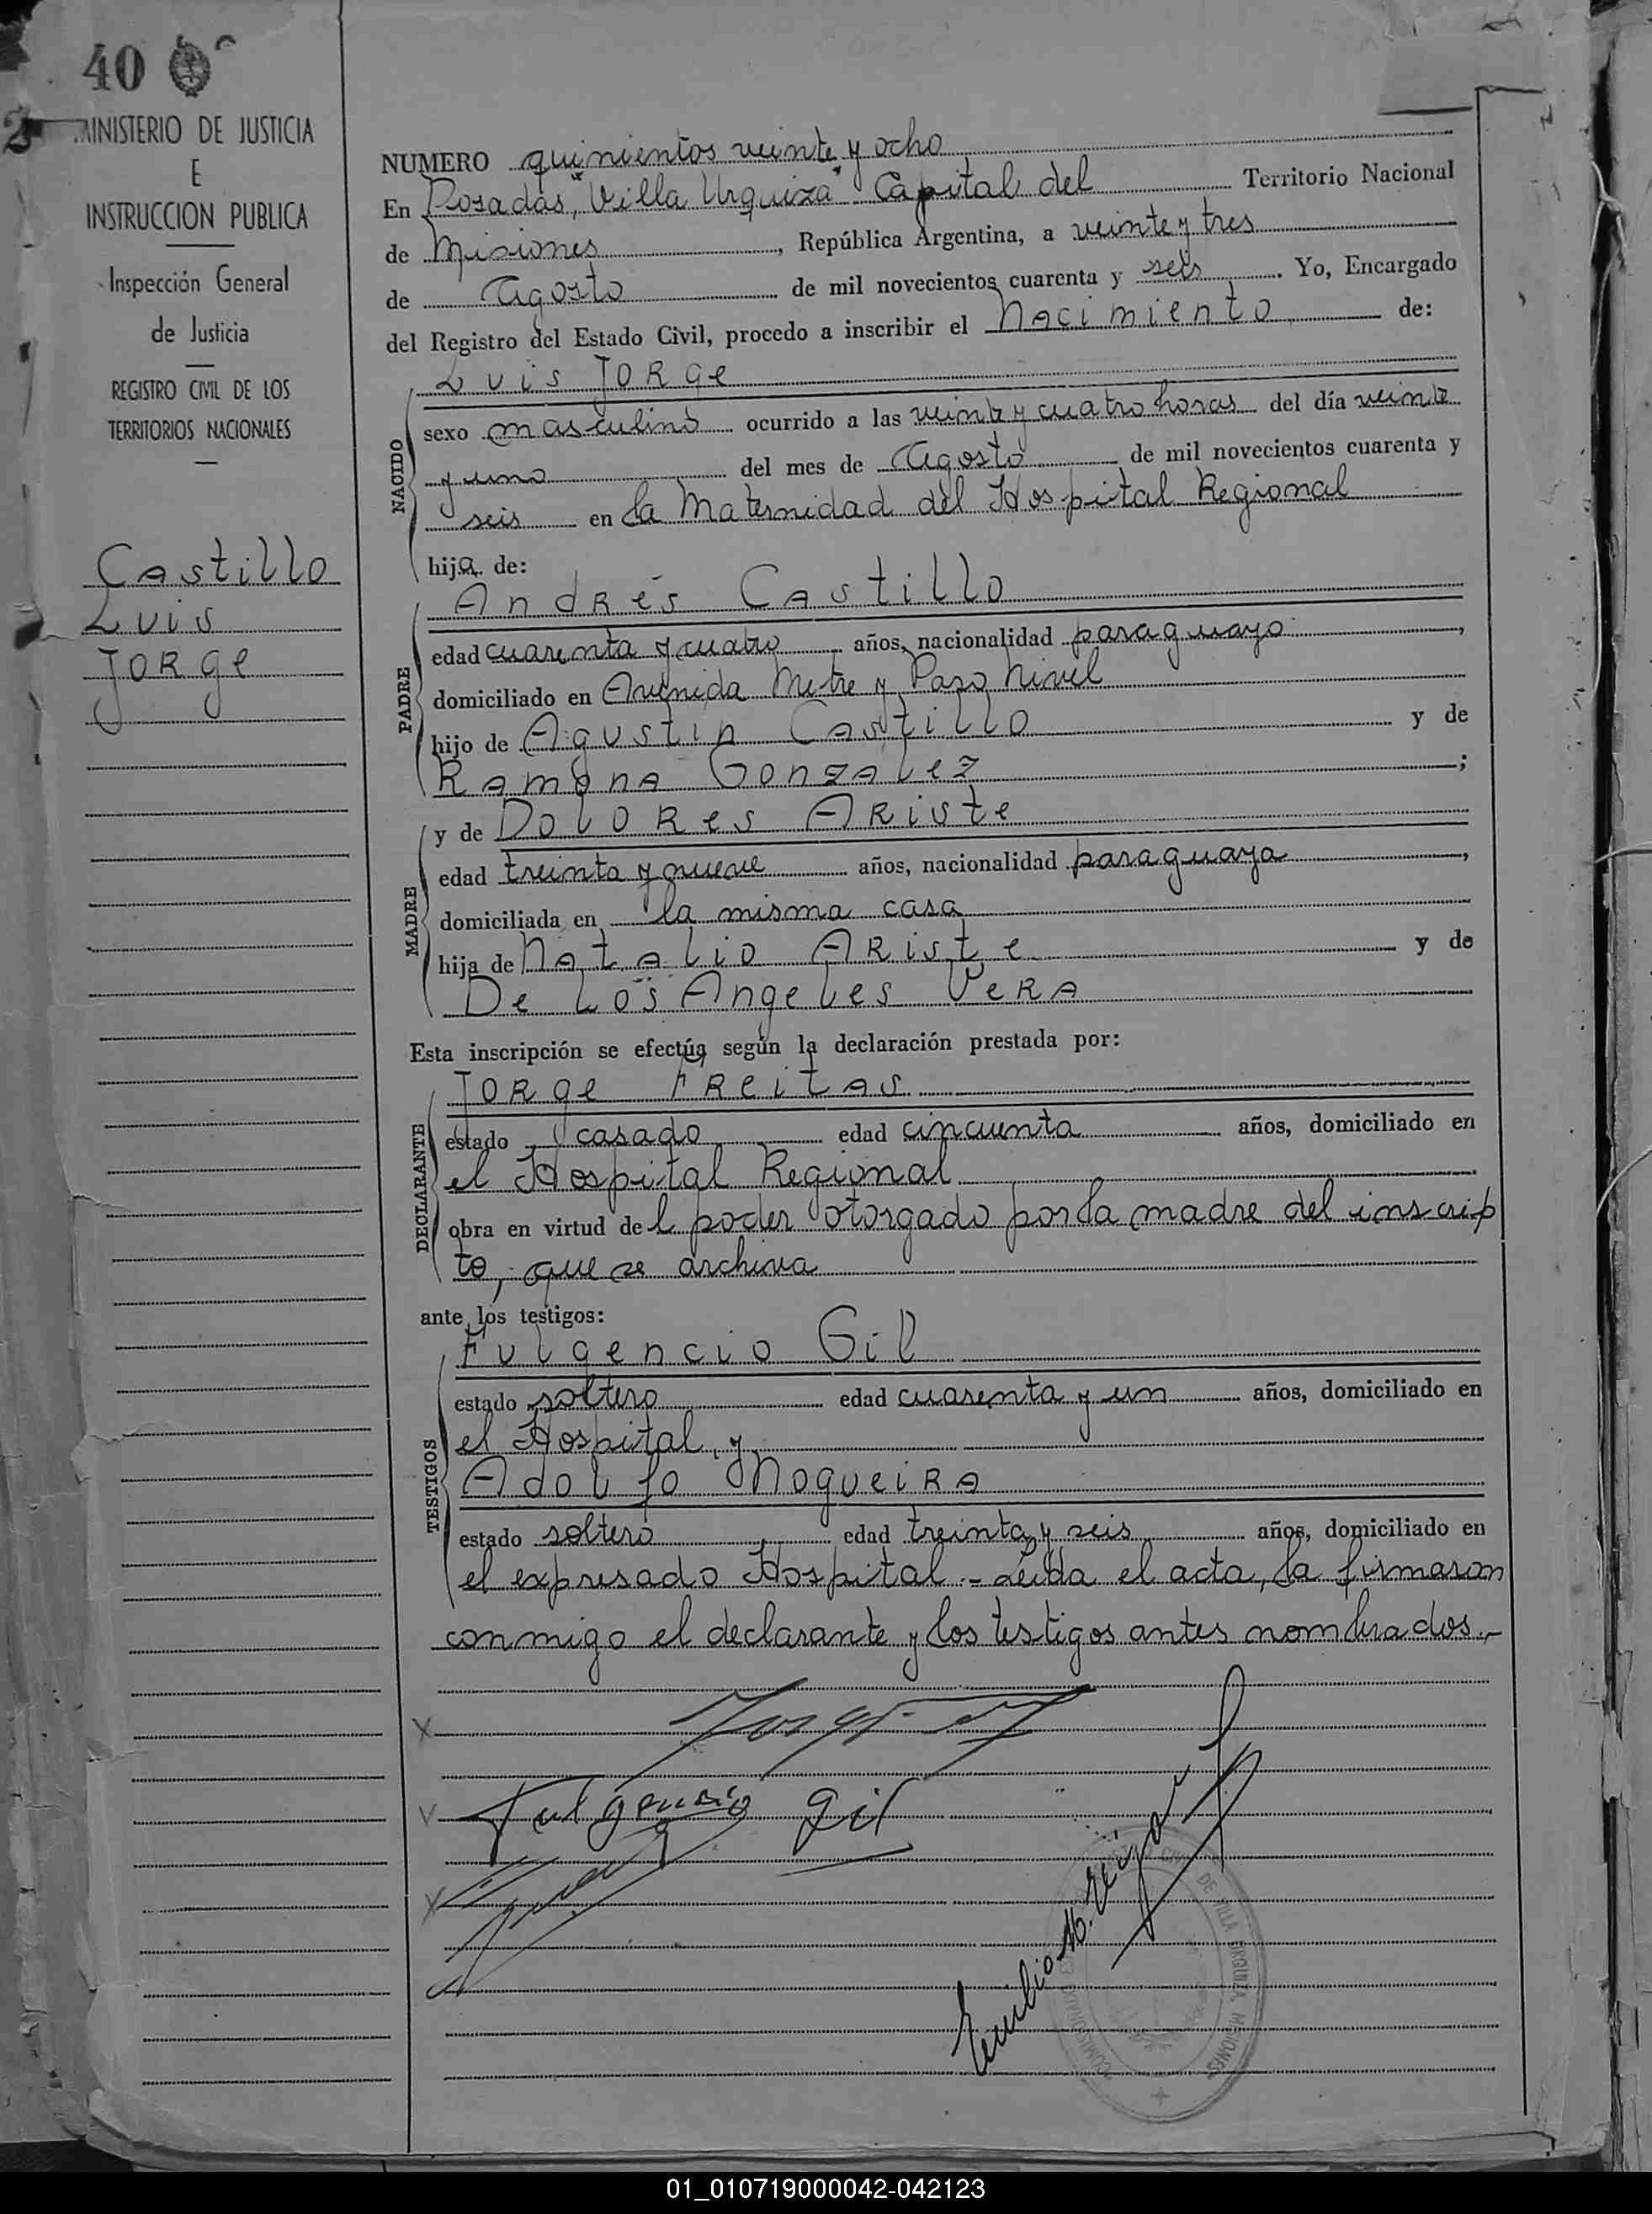 40
MINISTERIO DE JUSTICIA
E
INSTRUCCION PUBLICA
Inspección General
de Justicia
REGISTRO CIVIL DE LOS
TERRITORIOS NACIONALES
Castillo
Luis
Jorge
NUMERO quinientos veinte y ocho
En Posadas, "Villa Urquiza" Capital del Territorio Nacional
de Misiones, República Argentina, a veinte y tres
de Agosto de mil novecientos cuarenta y seis. Yo, Encargado
del Registro del Estado Civil, procedo a inscribir el Nacimiento de:
Luis Jorge
NACIDO
sexo masculino ocurrido a las veinte y cuatro horas del día veinte
y uno del mes de Agosto de mil novecientos cuarenta y
seis en la Maternidad del Hospital Regional
hijo de:
Andrés Castillo
PADRE
edad cuarenta y cuatro años, nacionalidad paraguayo,
domiciliado en Avenida Mitre y Paso Nivel
hijo de Agustin Castillo y de
Ramona Gonzalez;
y de Dolores Ariste
MADRE
edad treinta y nueve años, nacionalidad paraguaya,
domiciliada en la misma casa
hija de Natalio Ariste y de
De Los Angeles Vera
Esta inscripción se efectúa según la declaración prestada por:
Jorge Freitas
DECLARANTE
estado casado edad cincuenta años, domiciliado en
el Hospital Regional
obra en virtud del poder otorgado por la madre del inscrip
to, que se archiva
ante los testigos:
Fulgencio Gil
TESTIGOS
estado soltero edad cuarenta y un años, domiciliado en
el Hospital, y
Adolfo Nogueira
estado soltero edad treinta y seis años, domiciliado en
el expresado Hospital - Leida el acta, la firmaron
conmigo el declarante y los testigos antes nombrados.-
Fulgencio Gil
Emilio
DE VILLA URQUIZA MISIONES
01_010719000042-042123